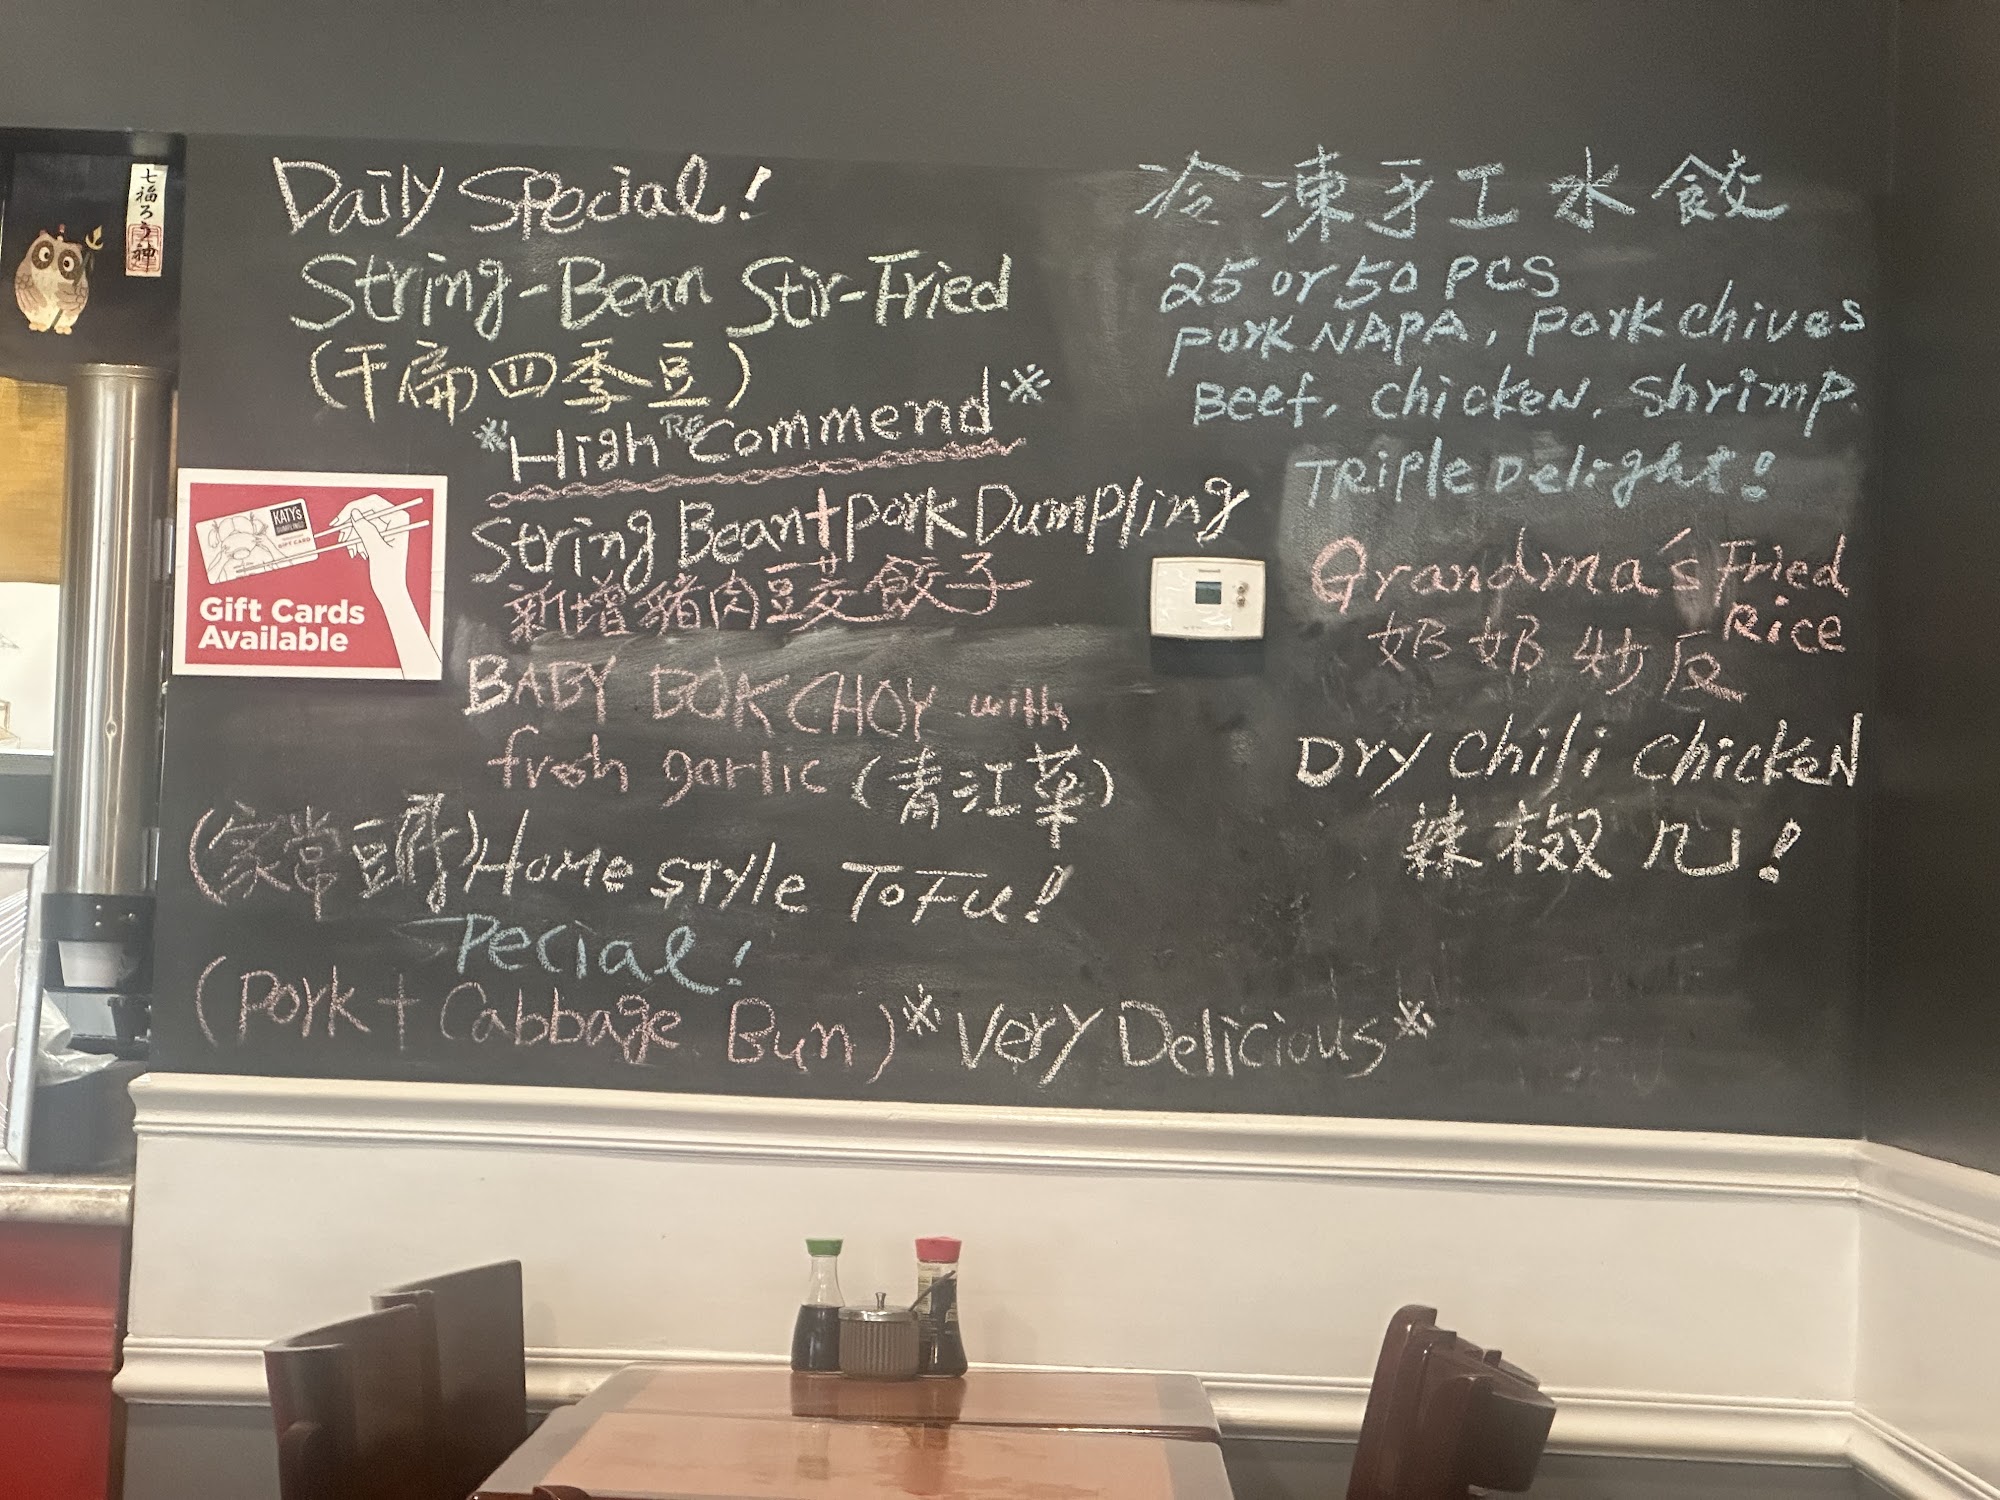 Daily Special!
String-Bean Stir-Fried
(干扁四季豆)
※High Recommend※
String Bean+pork Dumpling
新增豬肉豆芠餃子
BABY BOK CHOY with
fresh garlic (青江菜)
(家常豆腐) Home STYLE TOFU!
Special!
(Pork + Cabbage Bun) ※Very Delicious※
冷凍手工水餃
25 or 50 PCS
PORK NAPA, PORK chives
Beef, chicken, shrimp.
TRiPle Delight!
Grandma's Fried
Rice
奶奶炒反
DRY chili chicken
辣椒几!
七福ろう神
KATY's
DUMPLINGS
GIFT CARD
Gift Cards
Available